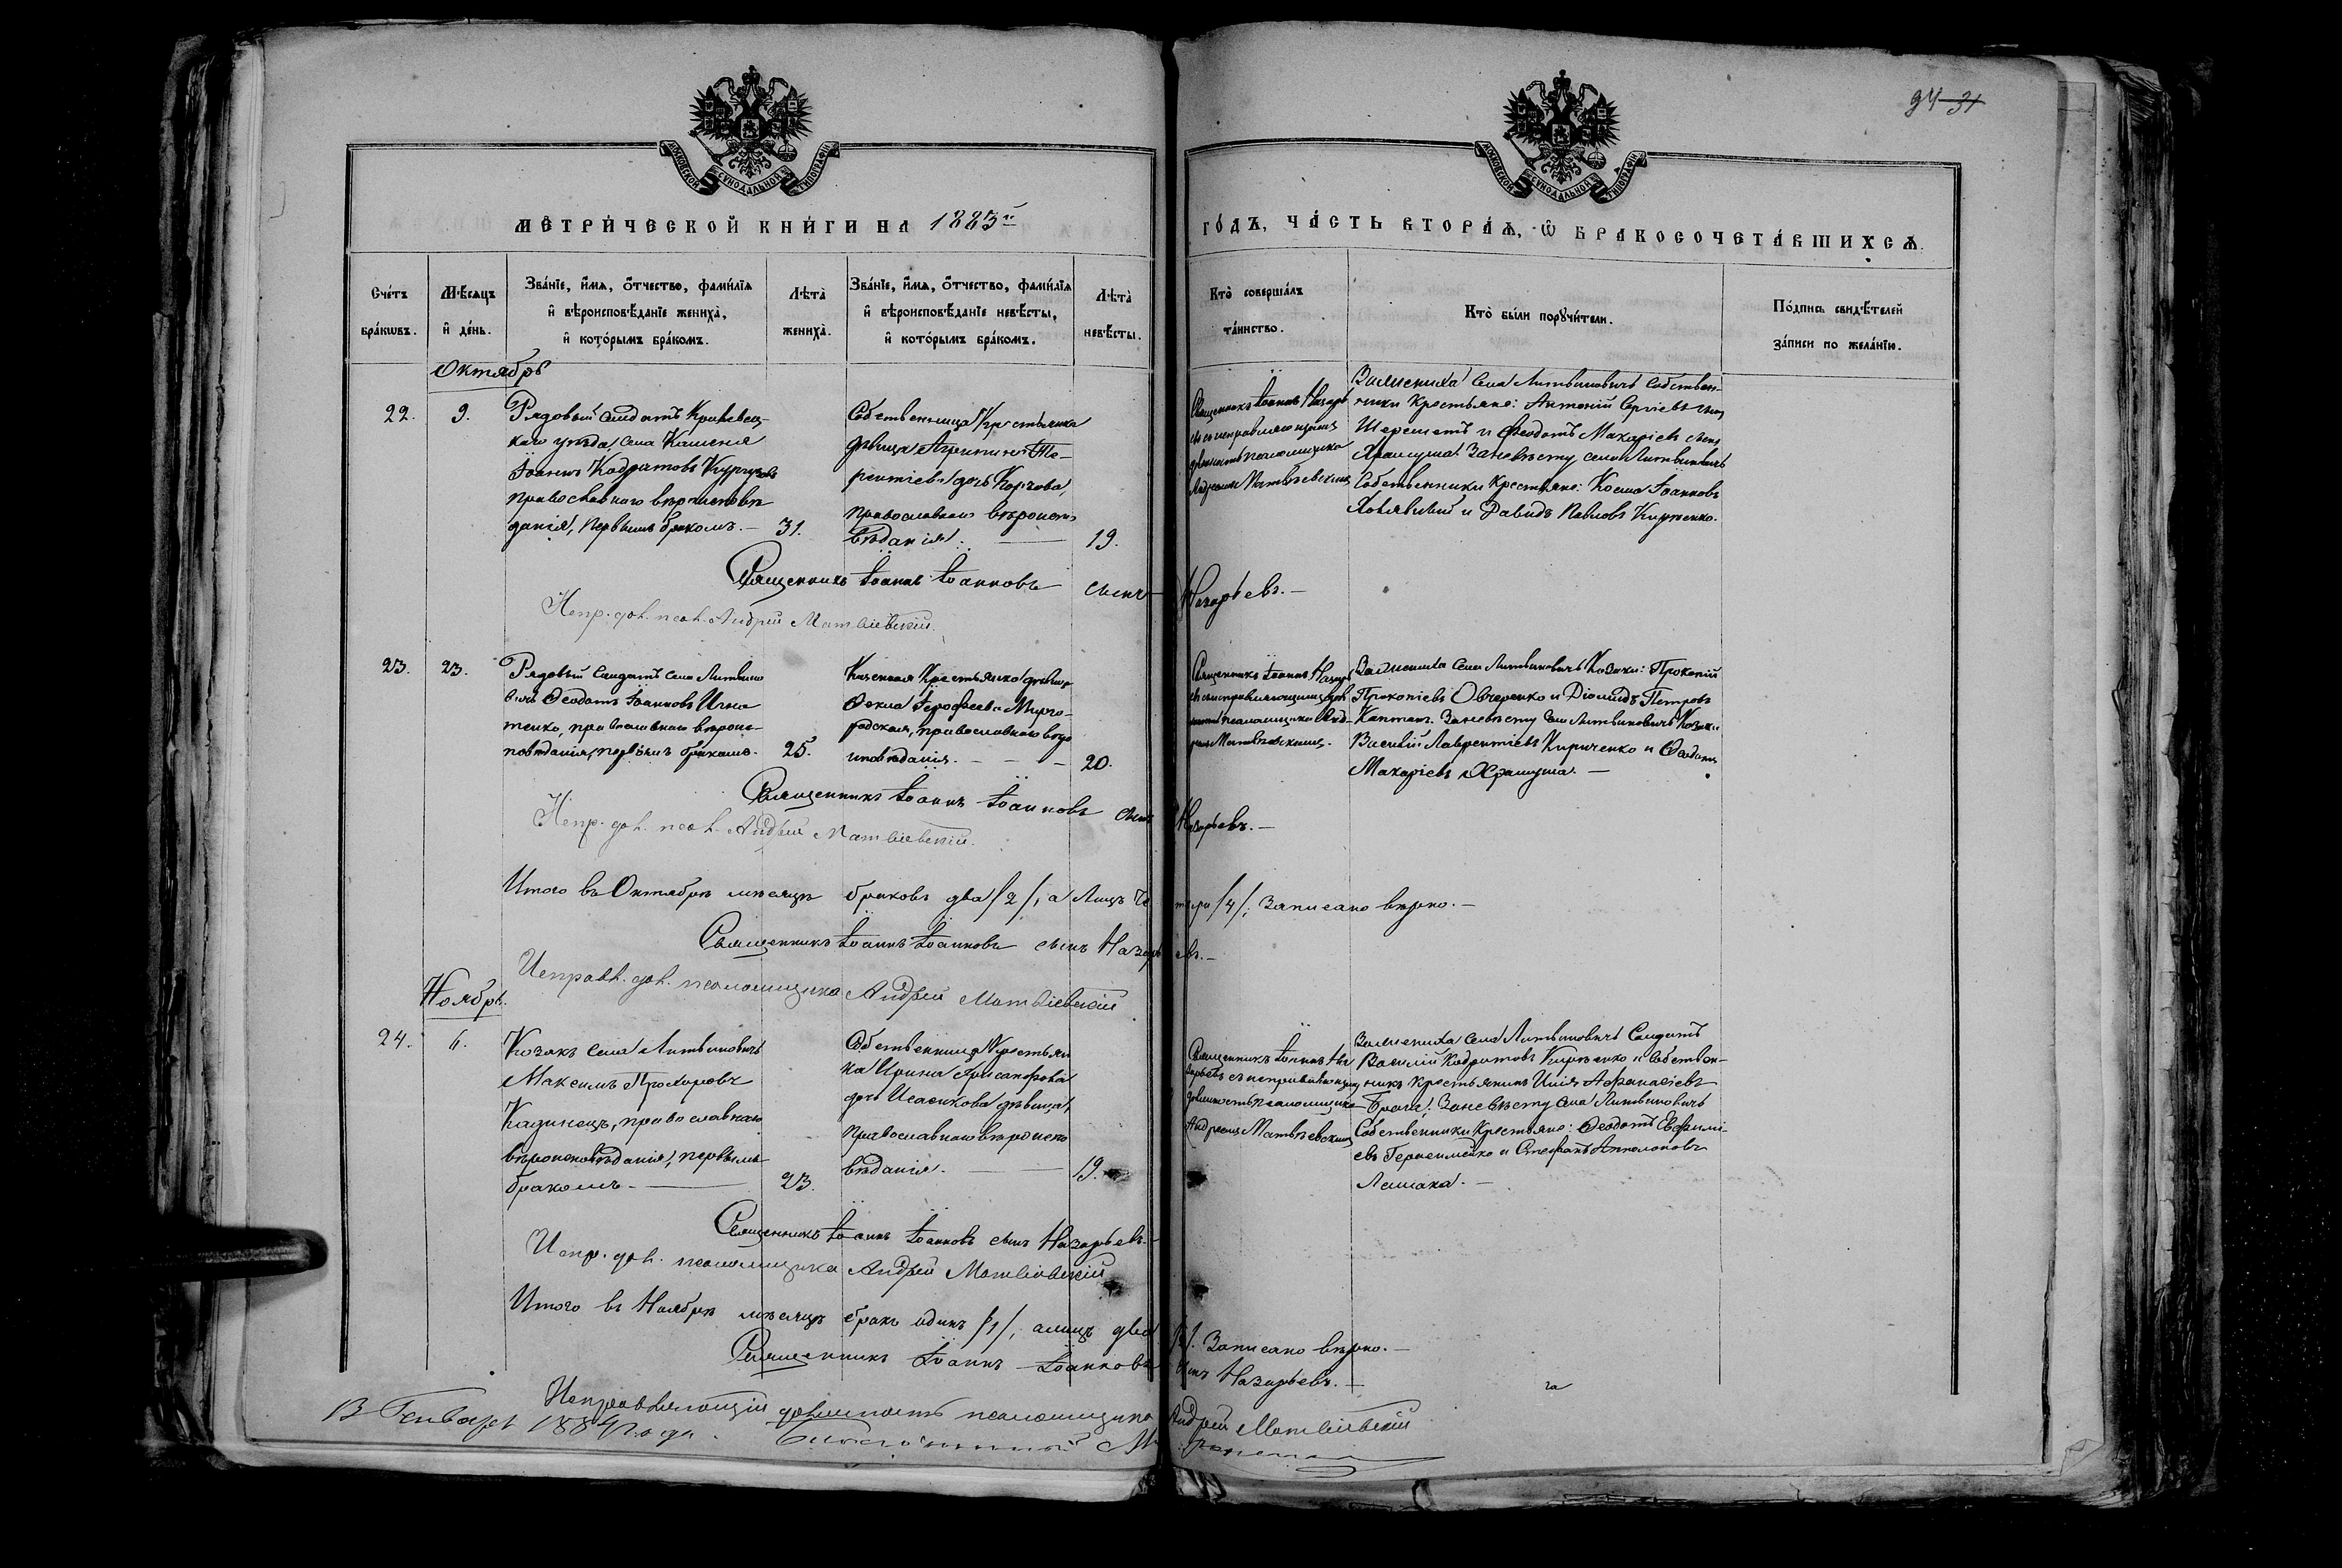 94 31
МОСКОВСКОЙ СѴНОДАЛЬНОЙ ТИПОГРАФІИ
МОСКОВСКОЙ СѴНОДАЛЬНОЙ ТИПОГРАФІИ
МЕТРИ́ЧЕСКОЙ КНИ́ГИ НА 1883й
ГО́ДЪ, ЧА́СТЬ ВТОРА́Ѧ, Ѡ БРАКОСОЧЕТА́ВШИХСѦ.
Сче́тъ бра́кѡвъ.
Мѣ́сѧцъ и҆ де́нь.
Зва́нїе, и҆́мѧ, ѻ҆́тчество, фами́лїѧ
и҆ вѣроисповѣ́данїе жениха̀,
и҆ кото́рымъ бра́комъ.
Лѣта̀ жениха̀.
Зва́нїе, и҆́мѧ, ѻ҆́тчество, фами́лїѧ
и҆ вѣроисповѣ́данїе невѣ́сты,
и҆ кото́рымъ бра́комъ.
Лѣта̀ невѣ́сты.
Кто̀ соверша́лъ та́инство.
Кто̀ бы́ли порꙋчи́тели.
По́дпись свидѣ́телей
за́писи по жела́нїю.
Октябрь
22.
9.
Рядовый Солдатъ
каго уѣзда села
Іоаннъ Кодратовъ
православнаго вѣроисповѣ
данія, первымъ бракомъ. —
31.
Собственница Крестьянка
дѣвица
рентіева дочь
православнаго вѣроиспо
вѣданія. —
19.
Священникъ Іоаннъ Назарь
евъ съ исправляющимъ
должность псаломщика
Андреемъ Матвѣевскимъ
По женихѣ Села Литвиновичъ Собствен-
ники Крестьяне: Антоній Сергіевъ сынъ
Шереметъ и Ѳеодотъ Макаріевъ сынъ
Храпуша. По невѣсту села Литвиновичъ
Собственники Крестьяне: Косма Іоанновъ
и Давидъ Павловъ
Священникъ Іоаннъ Іоанновъ сынъ Назарьевъ. —
Испр. дол. псал. Андрей Матвіевскій.
23.
23.
Рядовый Солдатъ села Литвино
вичъ Ѳеодотъ Іоанновъ Игна
тенко, православнаго вѣроис-
повѣданія, первымъ бракомъ.
25.
Казенная Крестьянка дѣвица
Ѳекла Іероѳеева Мирго-
родская, православнаго вѣро
исповѣданія. — — —
20.
Священникъ Іоаннъ Назарь
евъ съ исправляющимъ дол
псаломщика Анд-
реемъ Матвѣевскимъ.
По женихѣ Села Литвиновичъ Козаки: Прокопій
Прокопіевъ Овчаренко и Діомидъ Петровъ
Каптанъ. По невѣсту Села Литвиновичъ Козаки
Василій Лаврентіевъ Кириченко и Ѳеодотъ
Макаріевъ Храпуша. —
Священникъ Іоаннъ Іоанновъ сынъ Назарьевъ. —
Испр. дол. псал. Андрей Матвіевскій.
Итого въ Октябрѣ мѣсяцѣ браковъ два /2/, а лицъ четыри /4/; Записано вѣрно. —
Священникъ Іоаннъ Іоанновъ сынъ Назарьевъ. —
Исправл. дол. псаломщика Андрей Матвіевскій
Ноябрь.
24.
6.
Козакъ села Литвиновичъ
Максимъ Прохоровъ
православнаго
вѣроисповѣданія, первымъ
бракомъ. —
23.
Собственница Крестьян
ка Ирина
дочь Исаенкова дѣвица,
православнаго вѣроиспо
вѣданія. —
19.
Священникъ Іоаннъ На
зарьевъ съ исправляющимъ
должность псаломщика
Андреемъ Матвѣевскимъ
По женихѣ Села Литвиновичъ Солдатъ
Василій Кодратовъ и Собствен-
никъ Крестьянинъ Илія Аѳанасіевъ
По невѣсту Села Литвиновичъ
Собственники Крестьяне: Ѳеодотъ Евѳимі-
евъ Герасименко и Стефанъ
Священникъ Іоаннъ Іоанновъ сынъ Назарьевъ. —
Испр. дол. псаломщика Андрей Матвіевскій
Итого въ Ноябрѣ мѣсяцѣ бракъ одинъ /1/, а лицъ два /2/. Записано вѣрно. —
Священникъ Іоаннъ Іоанновъ сынъ Назарьевъ. —
Исправляющій должность псаломщика Андрей Матвіевскій
В Генварѣ 1884 года.